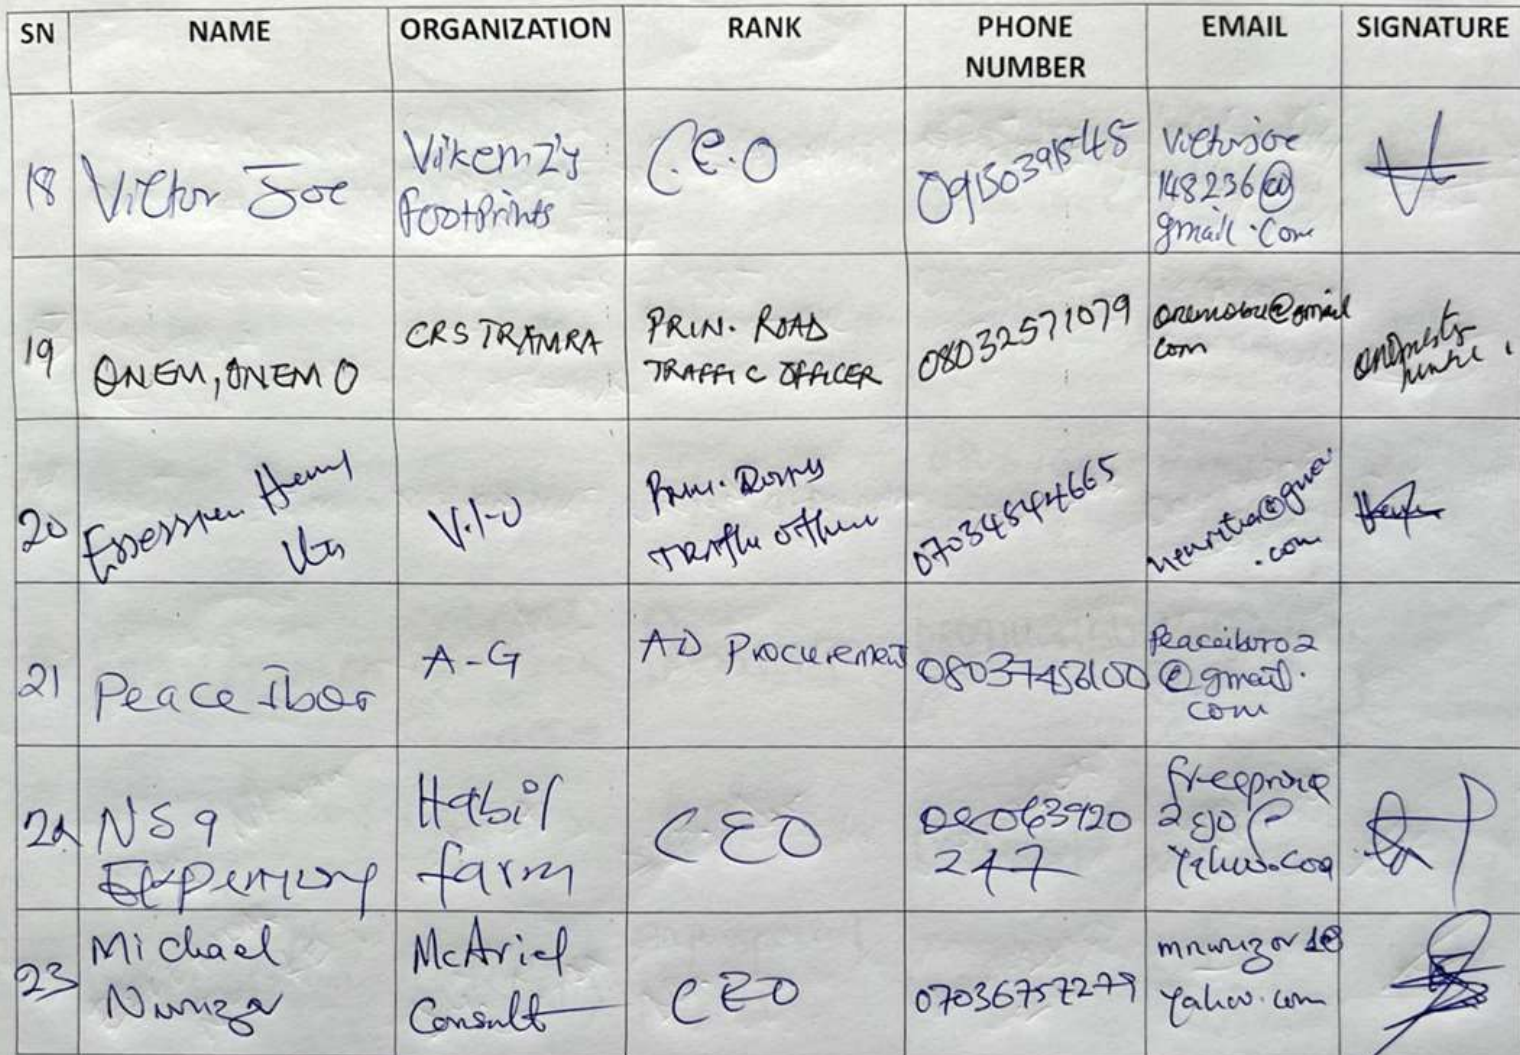 SN NAME ORGANIZATION RANK PHONE NUMBER EMAIL SIGNATURE
18 Victor Joe Vikemzy Footprints C.E.O 09150391545 Victorjoe148236@gmail.com
19 ONEM, ONEM O CRS TRAMRA PRIN. ROAD TRAFFIC OFFICER 08032571079 onemobu@gmail com
20 Henry V.I.O Prin. Traffic Officer 07034844665 .com
21 Peace Ibor A-G AD Procurement 08037456100 Peaceiboro2@gmail.com
22 NSA Habil farm CEO 08063920247
23 Michael Nwuzor McAriel Consult CEO 07036757279 mnwuzor1@yahoo.com